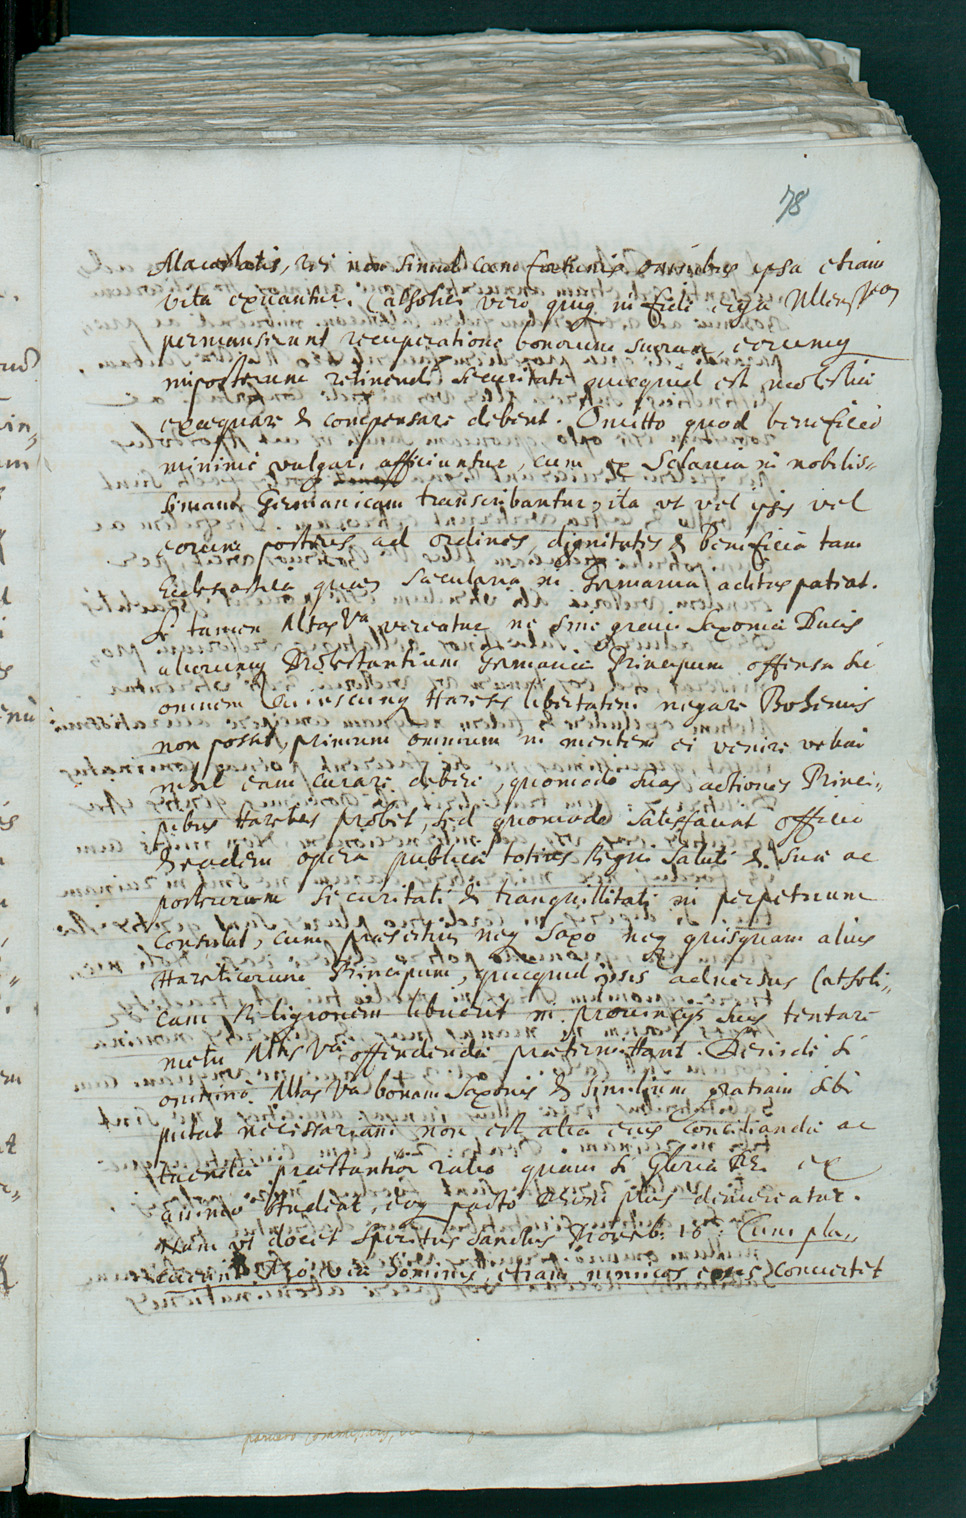 78
Maiestatis, nisi non simul cum fortunis omnibus ipsa etiam
vita exuantur. Catholici vero quiq in fide erga
permanserunt recuperatione bonorum suorum, eorumq
inposterum retinendi securitate quicquid est molestiæ
exæquare & compensare debent. Omitto quod beneficio
minime vulgari afficiuntur, cum ex Sclavia in nobilis=
simam Germanicam transcribantur, ita vt vel ipsis vel
eorum posteris ad ordines, dignitates & beneficia tam
Ecclesiastica quam Sæcularia in Germania aditus pateat.
Si tamen Altas Va vereatur ne sine graui Saxoniæ Ducis
aliorumq Protestantium Germaniæ Principum offensa sic
omnem cuiuscunq Hæresis libertatem negare Bohemis
non possit, primum omnium in mentem ei venire
nihil eam curare debere, quomodo suas actiones Princi=
pibus Hæreticis probet, sed quomodo satisfaciat officio
& eadem opera publicæ totius Regni saluti & suæ ac
posterorum securitati & tranquillitati in perpetuum
consulat, cum præsertim neq Saxo neq quisquam alius
Hæreticorum Principum, quicquid ipsis aduersus Catholi=
cam Religionem libuerit in prouincijs suis tentare
metu Altis Væ offendendæ prætermittant. Deinde si
omnino Altas Va bonam Saxonis & similium gratiam sibi
putat necessariam non est alia eius conciliandæ ac
tuendæ præstantior ratio quam si Gloriæ DEI ex
animo studeat, eoq pacto Deum plus demereatur.
Nam vt docet Spiritus Sanctus Prouerb: 16: Cum pla=
cuerint Dno viæ hominis, etiam inimicos eius conuertet